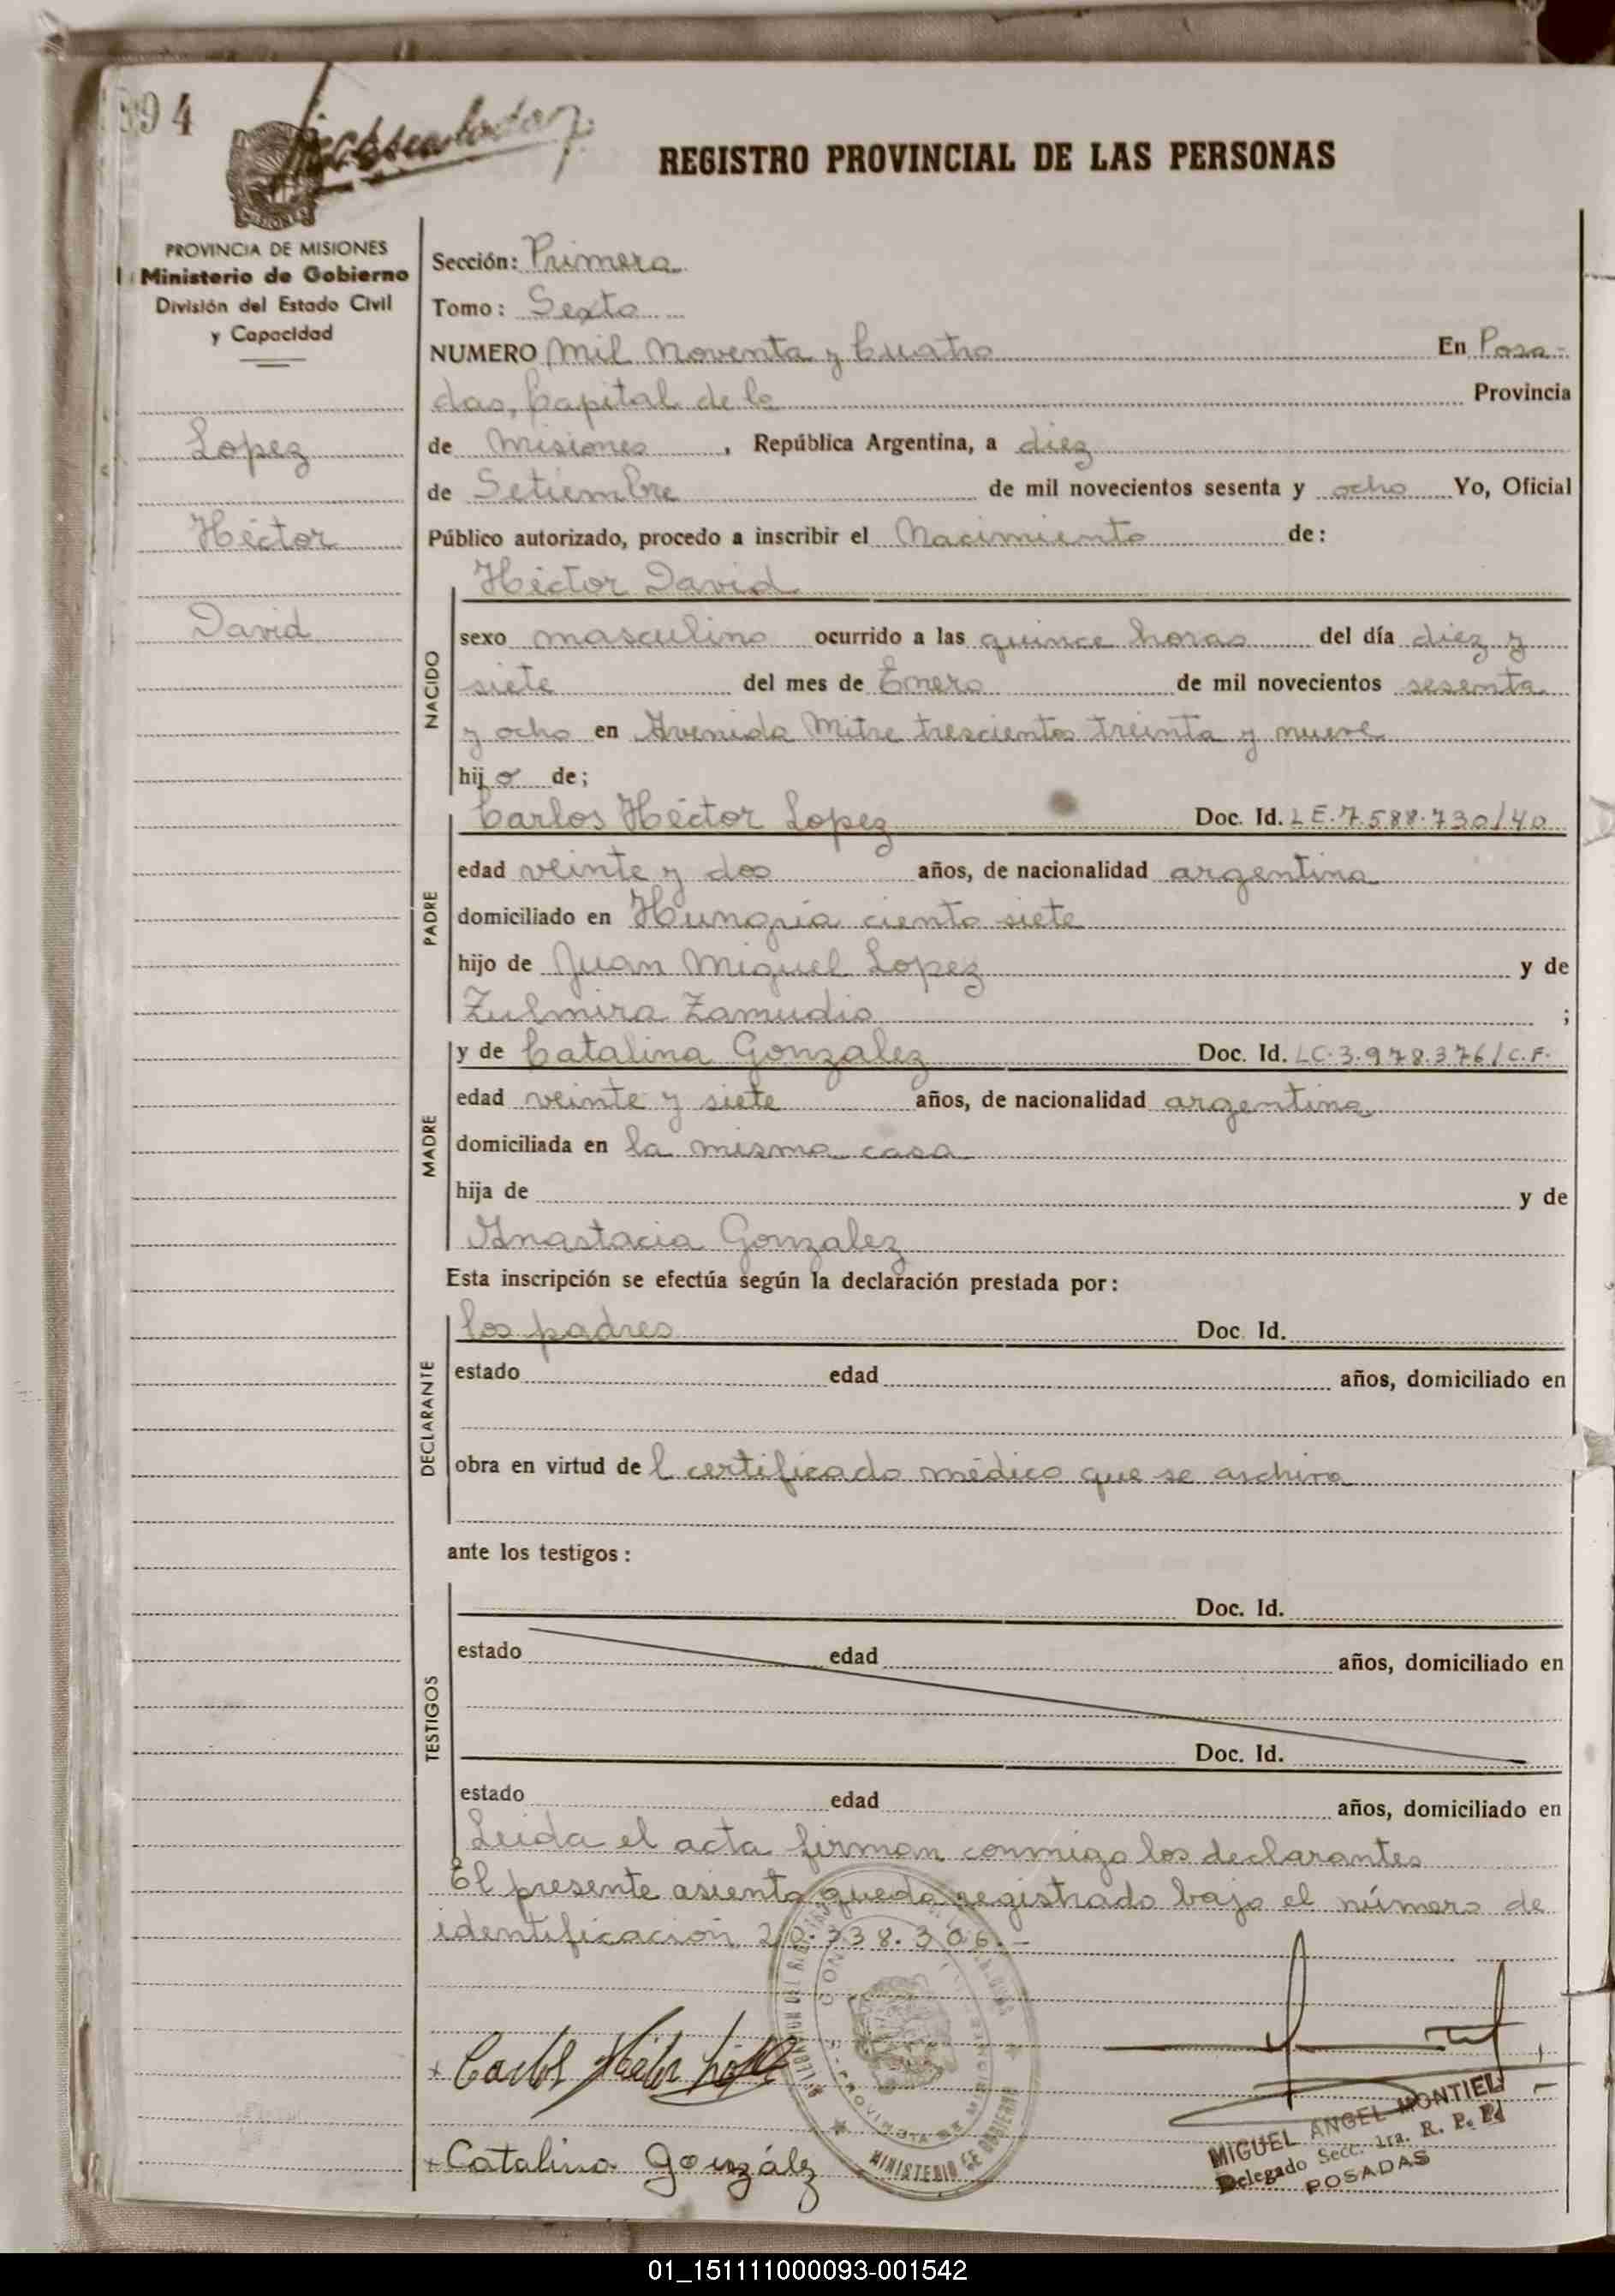 394
REGISTRO PROVINCIAL DE LAS PERSONAS
MISIONES
PROVINCIA DE MISIONES
Ministerio de Gobierno
División del Estado Civil
y Capacidad
Lopez
Héctor
David
Sección: Primera
Tomo: Sexto
NUMERO Mil Noventa y Cuatro En Posa-
das, Capital de la Provincia
de Misiones, República Argentina, a diez
de Setiembre de mil novecientos sesenta y ocho Yo, Oficial
Público autorizado, procedo a inscribir el Nacimiento de:
NACIDO
Héctor David
sexo masculino ocurrido a las quince horas del día diez y
siete del mes de Enero de mil novecientos sesenta
y ocho en Avenida Mitre trescientos treinta y nueve
hijo de;
PADRE
Carlos Héctor Lopez Doc. Id. LE.7.588.730/40
edad veinte y dos años, de nacionalidad argentina
domiciliado en Hungría ciento siete
hijo de Juan Miguel Lopez y de
Zulmira Zamudio ;
MADRE
y de Catalina Gonzalez Doc. Id. LC.3.978.376/C.F.
edad veinte y siete años, de nacionalidad argentina
domiciliada en la misma casa
hija de y de
Anastacia Gonzalez
Esta inscripción se efectúa según la declaración prestada por:
DECLARANTE
los padres Doc. Id.
estado edad años, domiciliado en
obra en virtud del certificado médico que se archiva
ante los testigos:
TESTIGOS
Doc. Id.
estado edad años, domiciliado en
Doc. Id.
estado edad años, domiciliado en
Leida el acta firman conmigo los declarantes
El presente asiento queda registrado bajo el número de
identificación 20.338.306.-
Carlos Héctor López
Catalina González
MINISTERIO DE GOBIERNO
MIGUEL ANGEL MONTIEL
Delegado Secc. 1ra. R. P. P.
POSADAS
01_151111000093-001542